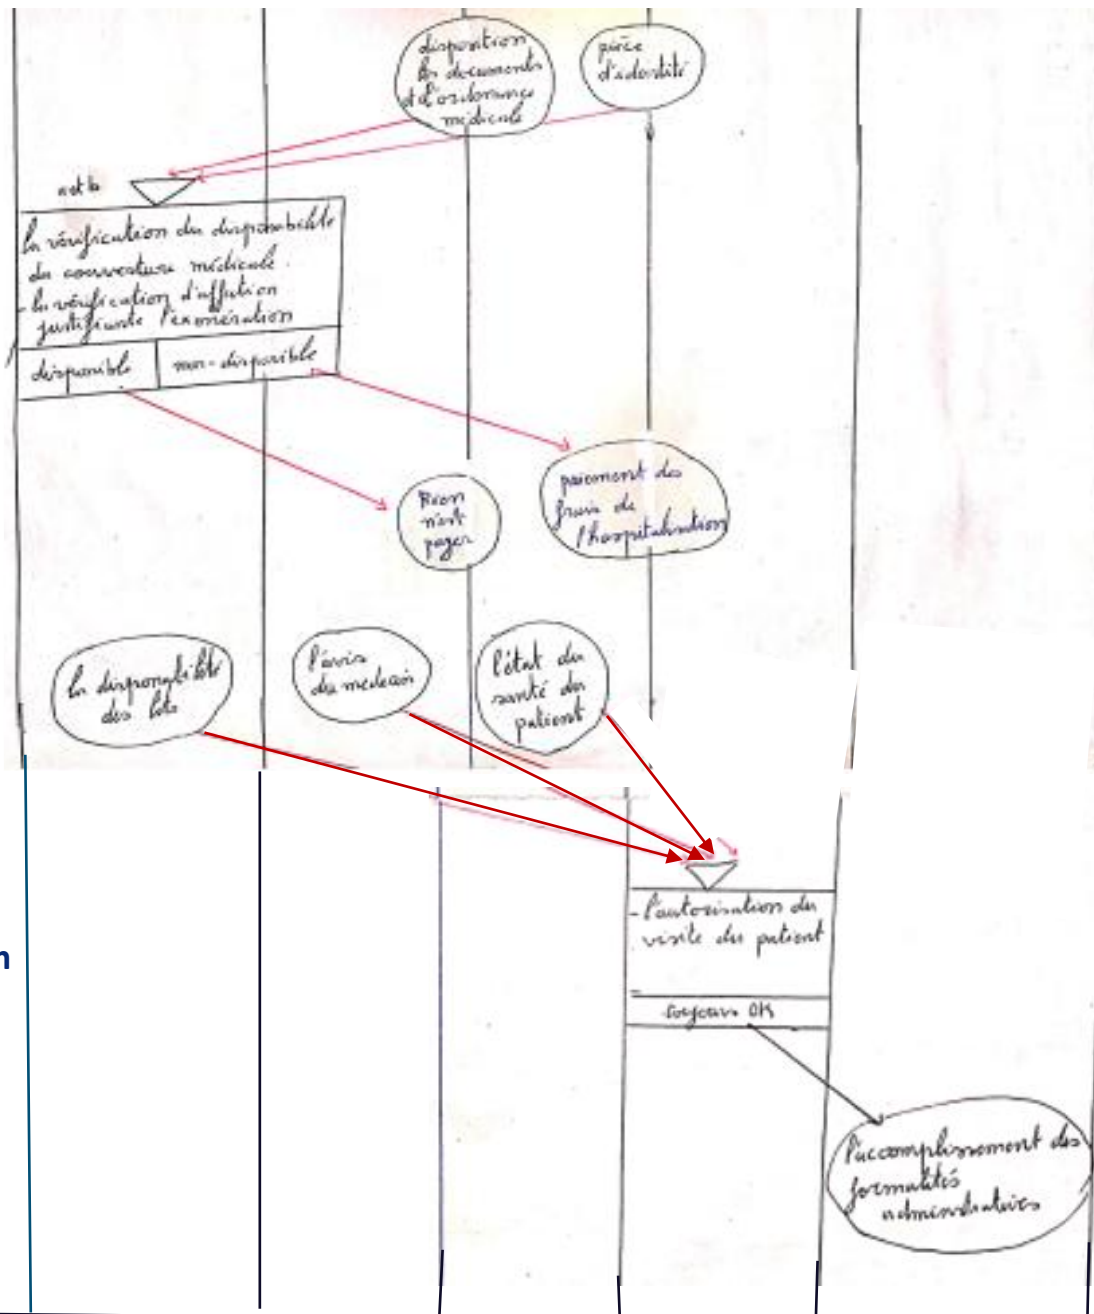 disposition
les documents
et l'ordonnance
médicale
pièce
d'identité
la vérification du disponibilité
du couverture médicale.
- la vérification d'affution
justifiante l'éxonération
disponible
non-disponible
Rien
n'est
payer
paiement des
frais de
l'hospitalisation
la disponibilité
des lits
l'avis
du medecin
l'état du
santé du
patient
- l'autorisation du
visite du patient
-
toujours OK
n
l'accomplissement des
formalités
administratives